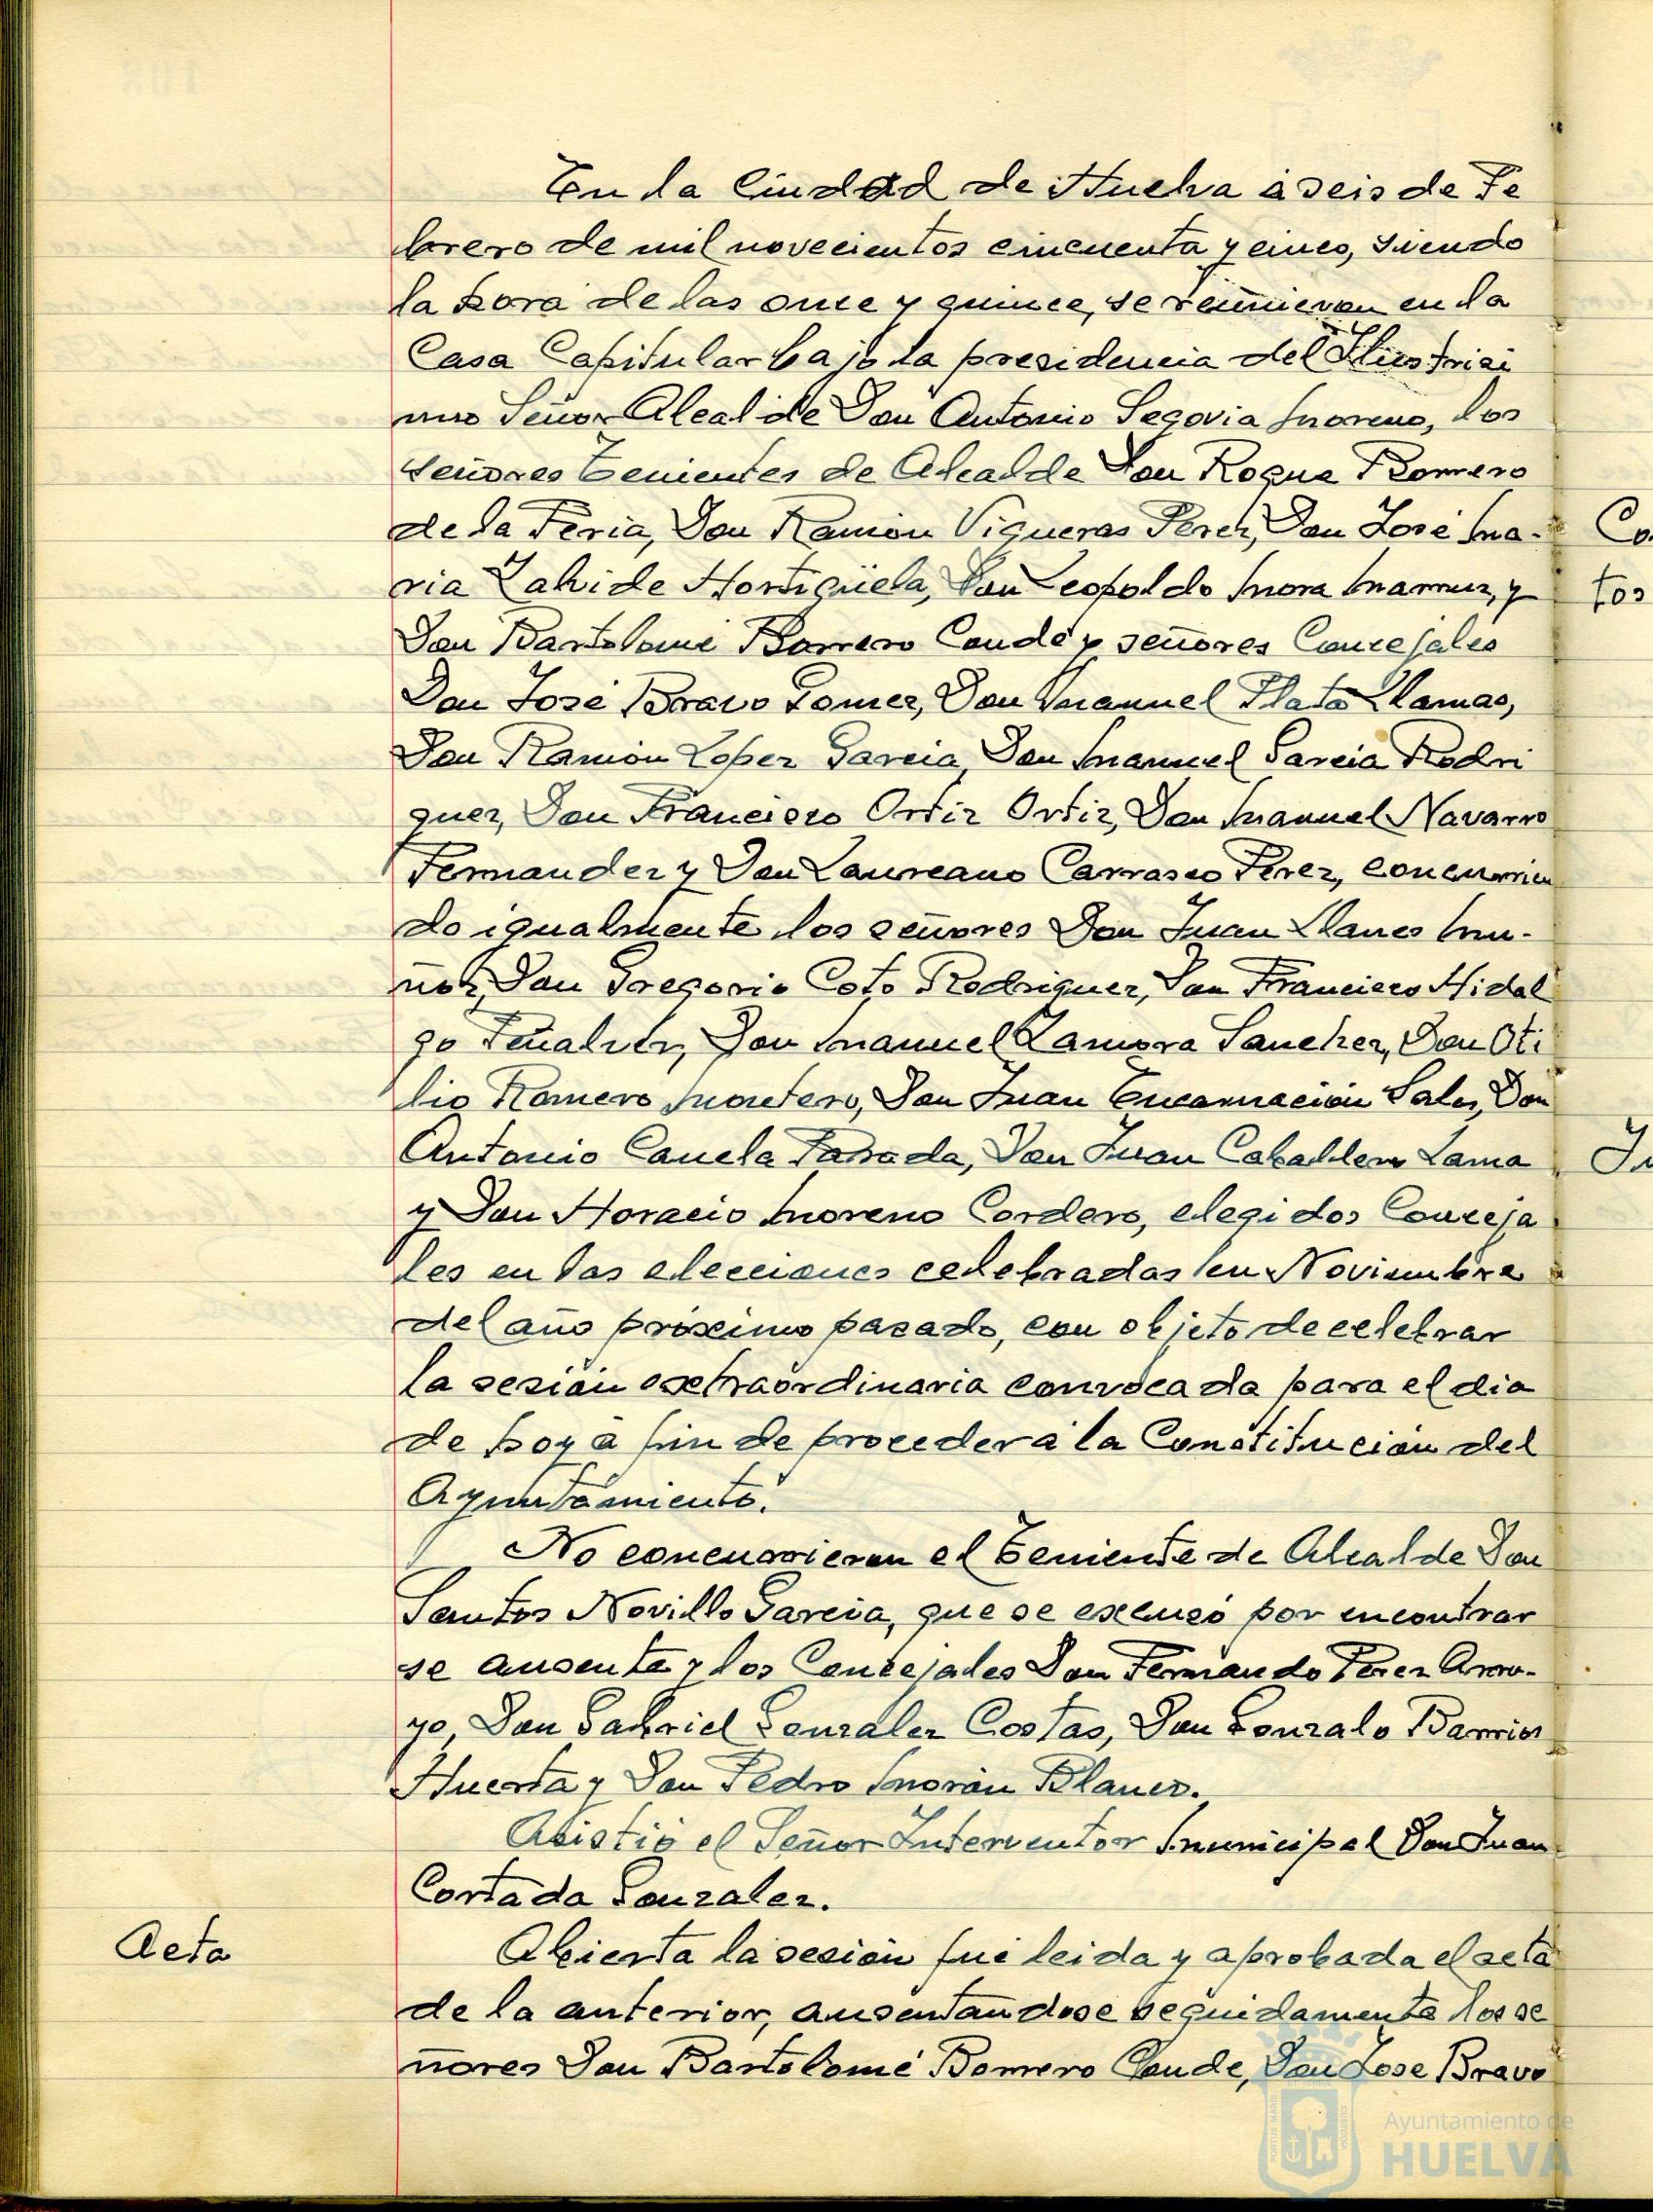 En la Ciudad de Huelva á seis de Fe
brero de mil novecientos cincuenta y cinco, siendo
la hora de las once y quince, se reunieron en la
Casa Capitular bajo la presidencia del Ilustrisi
mo Señor Alcalde Don Antonio Segovia Moreno, los
señores Tenientes de Alcalde Don Roque Borrero
de la Feria, Don Ramón Vigueras Perez, Don José Ma-
ria Zalvide Hortigüela, Don Leopoldo Mora y
Don Bartolomé Borrero Conde y señores Concejales
Don José Bravo Gomez, Don Manuel Plata Llamas,
Don Ramón Lopez Garcia, Don Manuel Garcia Rodri
guez, Don Francisco Ortiz Ortiz, Don Manuel Navarro
Fernandez y Don Laureano Carrasco Perez, concurrien
do igualmente los señores Don Juan Llanes Mu-
ñoz, Don Gregorio Coto Rodriguez, Don Francisco Hidal
go Peñalver, Don Manuel Zamora Sanchez, Don Oti
lio Romero Montero, Don Juan Encarnación Sales, Don
Antonio Canela Parada, Don Juan Caballero Lama
y Don Horacio Moreno Cordero, elegidos Conceja
les en las elecciones celebradas en Noviembre
del año próximo pasado, con objeto de celebrar
la sesión extraordinaria convocada para el dia
de hoy á fin de proceder á la Constitución del
Ayuntamiento.
No concurrieron el Teniente de Alcalde Don
Santos Novillo Garcia, que se excusó por encontrar
se ausente y los Concejales Don Fernando Perez Arro-
yo, Don Gabriel Gonzalez Costas, Don Gonzalo Barrios
Huerta y Don Pedro Morón Blanco.
Asistió el Señor Interventor Municipal Don Juan
Cortada Gonzalez.
Acta
Abierta la sesión fué leida y aprobada el acta
de la anterior, ausentandose seguidamente los se
ñores Don Bartolomé Borrero Conde, Don Jose Bravo
Co
tos
Ju
Ayuntamiento de
HUELVA